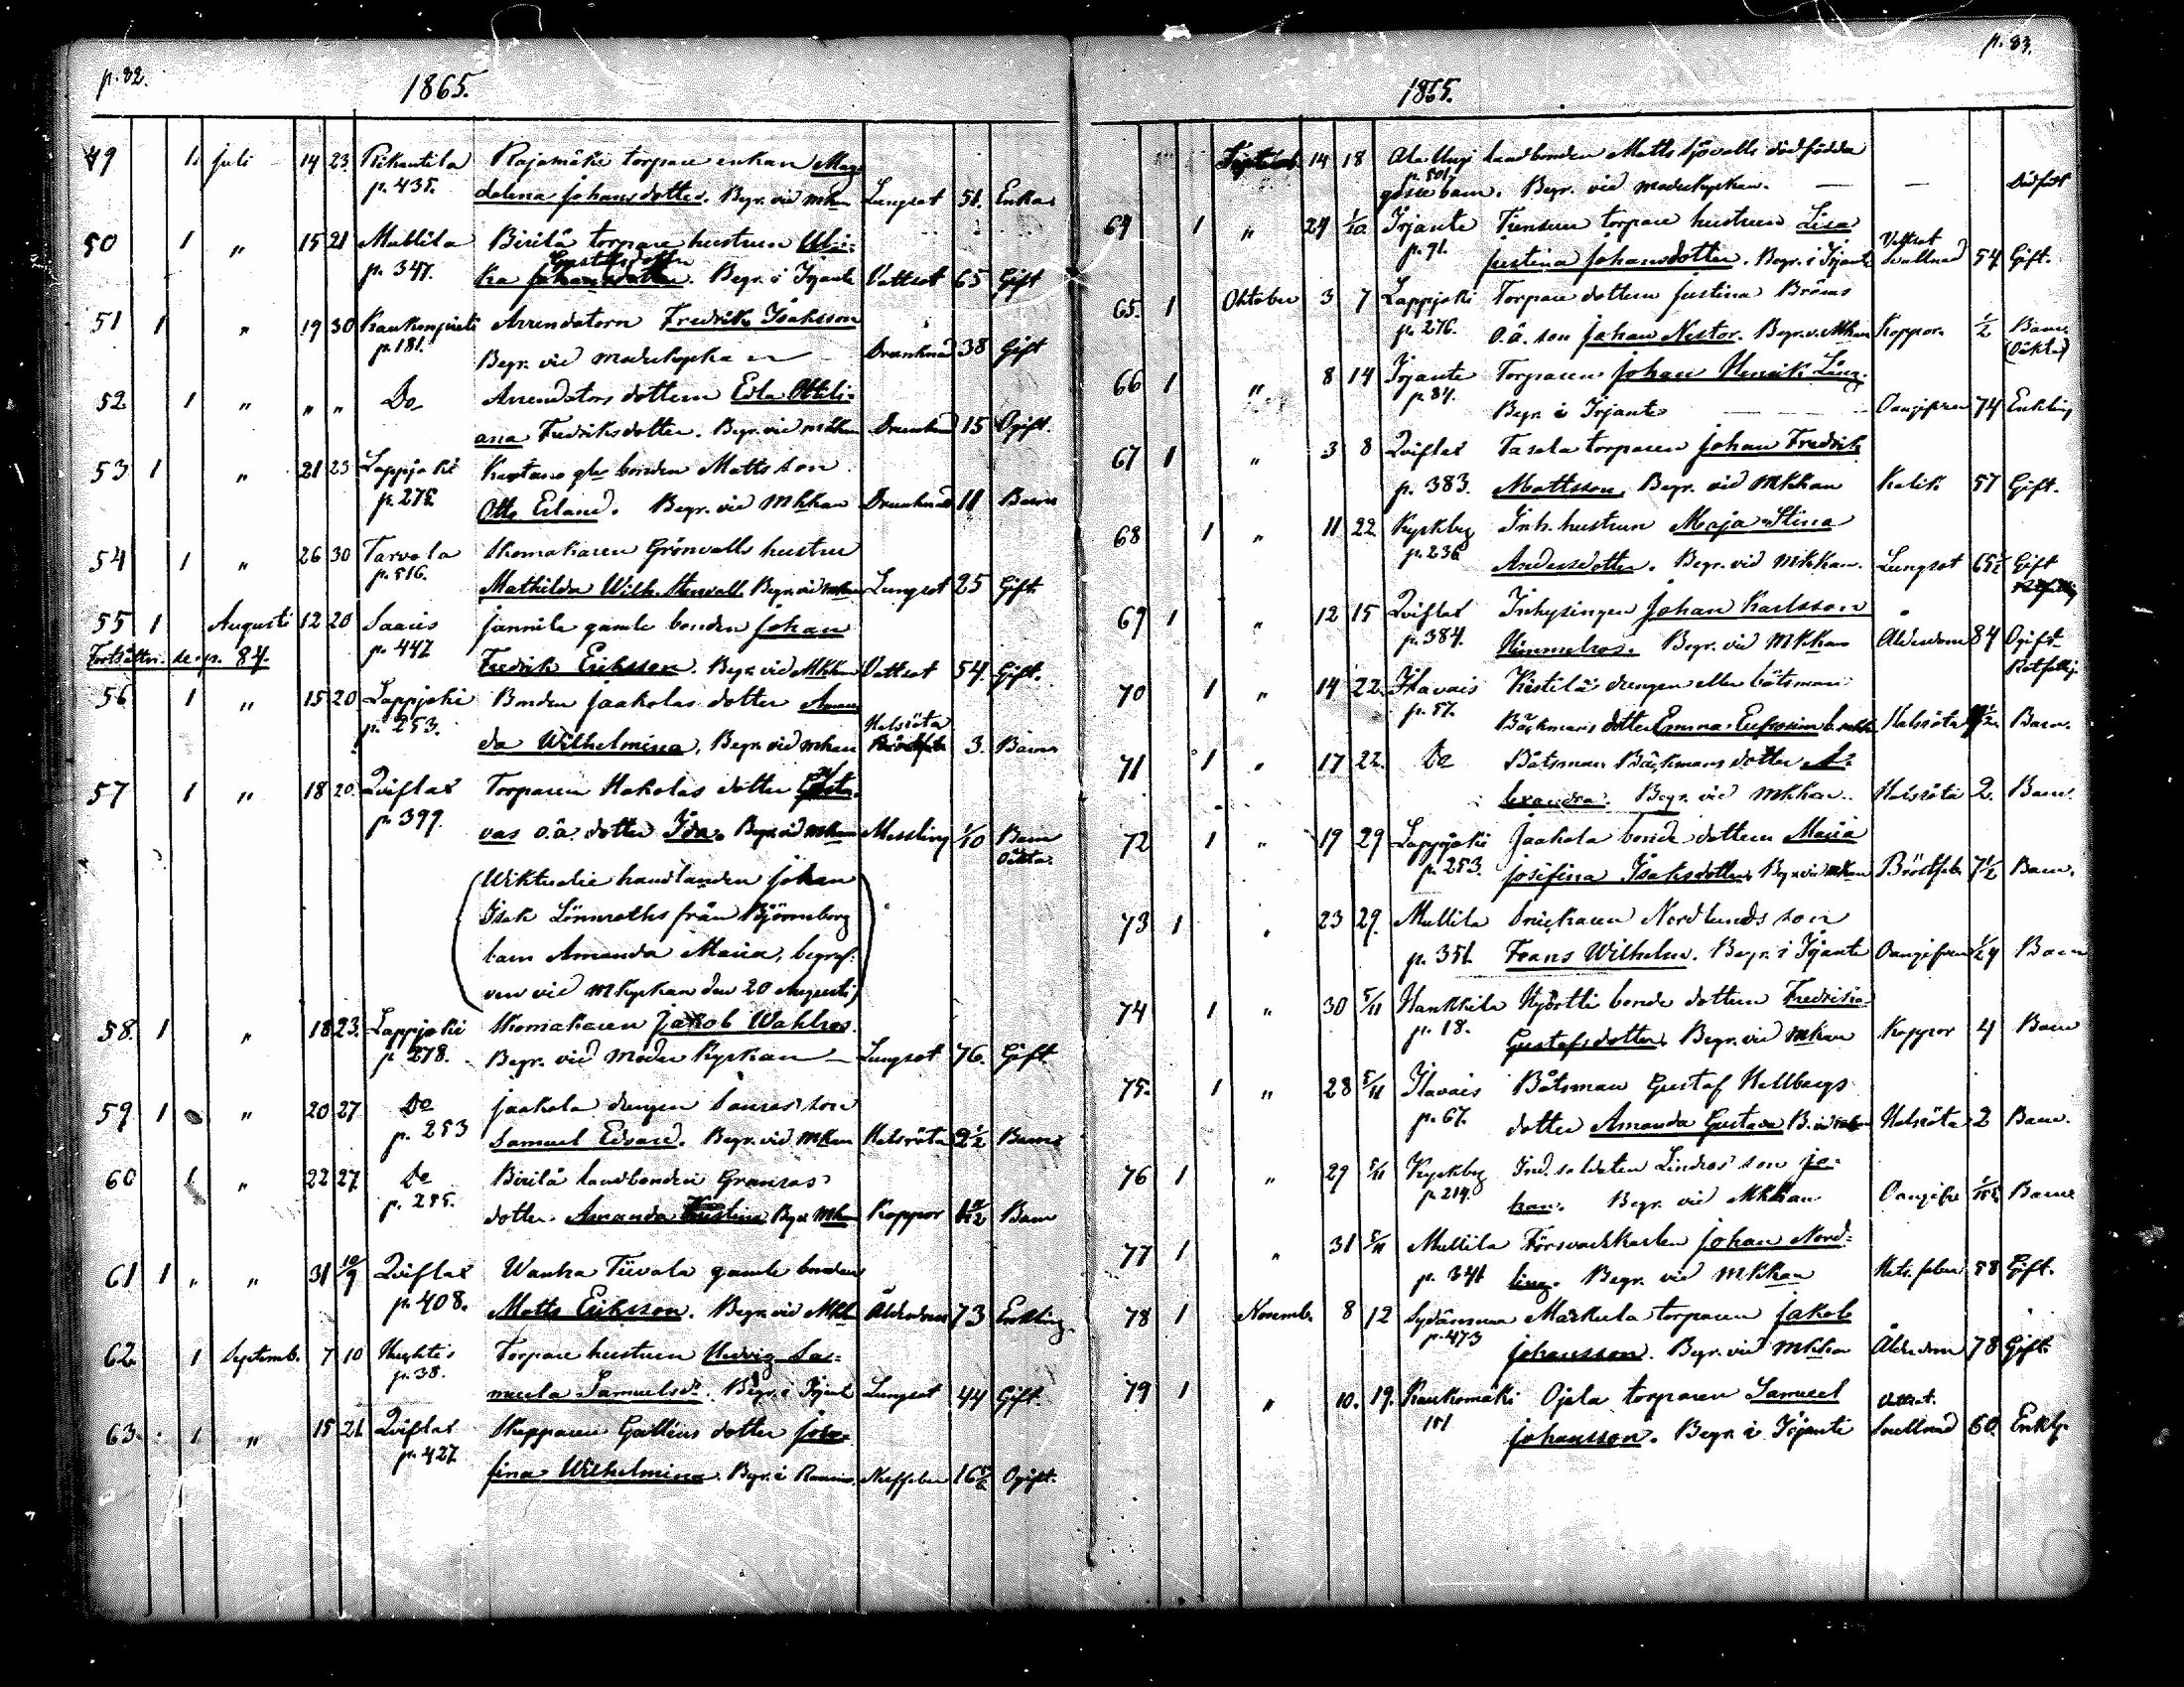 p. 82.
1865.
49 1. Juli 14 23. Rikantila Rajamäki torpare enkan Mag-
p. 435. dalena Johansdotter. Begr. vid mkan Lungsot 51. Enka
50 1 " 15 21 Mullila Birilä torpare hustrun Ulri-
Gustafsdotter
p. 347. ka Johansdotter. Begr. i Irjante Vattsot 65 Gift
51 1 " 19 30 Kaukompieti Arrendatorn Fredrik Isaksson
p. 181. Begr. vid moderkyrkan Drunknad 38 Gift
52 1 " " " Do Arrendators dottern Edla Ottili-
ana Fredriksdotter. Begr. vid mkkan Drunknad 15 Ogift.
53 1 " 21 23 Lappjoki bonden Matts son
p. 275 Otto Erland. Begr. vid Mkkan Drunknad 11 Barn
54 1 " 26 30 Tarvola Skomakaren Grönvalls hustru
p. 516. Mathilda Wilh. Stenvall. Begr. vid mkan Lungsot 25 Gift.
55 1 Augusti 12 20 Saaris Jannila gamle bonden Johan
Fortsättn. se p. 84. p. 447 Fredrik Eriksson. Begr. vid Mkkan Vattsot 54. Gift.
56 1 " 15 20 Lappjoki Bonden Jaakolas dotter Aman-
Halsröta
p. 253. da Wilhelmina, Begr. vid mkan 3. Barn
57 1 " 18 20. Qviflax Torparen Hakolas dotter Gusta-
p. 399 vas o.ä. dotter Ida. Begr. vid mkan Messling 1/10 Barn
Oäkta.
(Wiktualie handlanden Johan
Isak Lönnroths från Björneborg
barn Amanda Maria, begraf-
ven vid Mkyrkan den 20 Augusti)
58. 1 " 18 23. Lappjoki Skomakaren Jakob Wahlros.
p. 278. Begr. vid Moder Kyrkan Lungsot 76. Gift.
59 1 " 20 27 Do Jaakola drengen son
p. 253 Samuel Edvard. Begr. vid Mkan Halsröta 2 1/2 Barn
60 1 " 22 27 Do Birilä landbonden Granroos
p. 285. dotter Amanda Kristina Begr. Mk Koppor Barn
61 1 " " 31 10/9 Qviflax Wanha Tiivola gamle bonden
p. 408. Matts Eriksson. Begr. vid Mkk Ålderdom 73 Enkling.
62. 1 Septemb. 7 10 Huhtis Torpare hustrun Hedvig Sa-
p. 38. muela Samuelsdr. Begr. i Irjant Lungsot 44 Gift.
63. 1 " 15 21. Qviflax Skepparen Gallius dotter Jose-
p. 427. fina Wilhelmina. Begr. i Raumo. Nerffeber 16 Ogift.
p. 83.
1865.
Septemb. 14 18 Ala Uusi landbonden Matts Sjövalls dödfödda
p. 501. gosse barn. Begr. vid moderkyrkan. — — Dödfödt
64 1 " 24 1/10 Irjante torpare hustrun Lisa
Vattsot
p. 91. Justina Johansdotter. Begr. i Irjante Svullnad 54 Gift.
65. 1 Oktober 3 7 Lappjoki Torpare dottern Justina Broms
p. 276. o.ä. son Johan Nestor. Begr. v. Mkan Koppor. 1/2 Barn
(Oäkta)
66 1 " 8 14 Irjante Torparen Johan Henrik Ling.
p. 84. Begr. i Irjante Oangifven 74 Enkling
67 1 " 3 8 Qviflax Tasala torparen Johan Fredrik
p. 383. Mattsson, Begr. vid Mkkan Kolik 57 Gift.
68 1 " 11 22 Kyrkby Inh. hustrun Maja Stina
p. 236 Andersdotter. Begr. vid Mkkan. Lungsot 65 1/2 Gift
69 1 " 12 15 Qviflax Inhysingen Johan Karlsson
p. 384. Himmelros. Begr. vid Mkkan Ålderdom 84 Ogift
Rotfattig.
70 1 " 14 22. Ilavais Kestilä drengen eller båtsman
p. 57. Bäckmans dotter Emma Eufrosina Halsröta Barn.
71 1 " 17 22. Do Båtsman Bäckmans dotter A-
lexandra. Begr. vid Mkkan. Halsröta 2. Barn.
72 1 " 19 29 Lappjoki Jaakola bonde dottern Maria
p. 253. Josefina Isaksdotter. Begr. vid mkan Bröstfeb. 7 1/2 Barn.
73 1 " 23 29. Mullila Snickaren Nordlunds son
p. 351. Frans Wilhelm. Begr. i Irjante Oangifven 1/24 Barn
74 1 " 30 5/11 Hankkila Hyörtti bonde dottern Fredrika
p. 18. Gustafsdotter. Begr. vid mkan Koppor 4 Barn
75. 1 " 28 5/11 Ilavais Båtsman Gustaf Hellbergs
p. 67. dotter Amanda Gustava B. vid mkan Halsröta 2 Barn.
76 1 " 29 5/11 Kyrkby Ind. soldaten Lindros son Jo-
p. 214. han. Begr. vid Mkkan Oangifv. Barn
77 1 " 31 5/11 Mullila Försvarskarlen Johan Nord-
p. 341 ling. Begr. vid Mkkan 58 Gift.
78 1 Novemb. 8 12 Sydänmaa Markula torparen Jakob
p. 473 Johansson. Begr. vid Mkkan Ålderdom 78 Gift.
79 1 " 10. 19. Kaukomäki Ojala torparen Samuel
Vattsot.
151 Johansson. Begr. i Irjante Svullnad 60. Enklg.